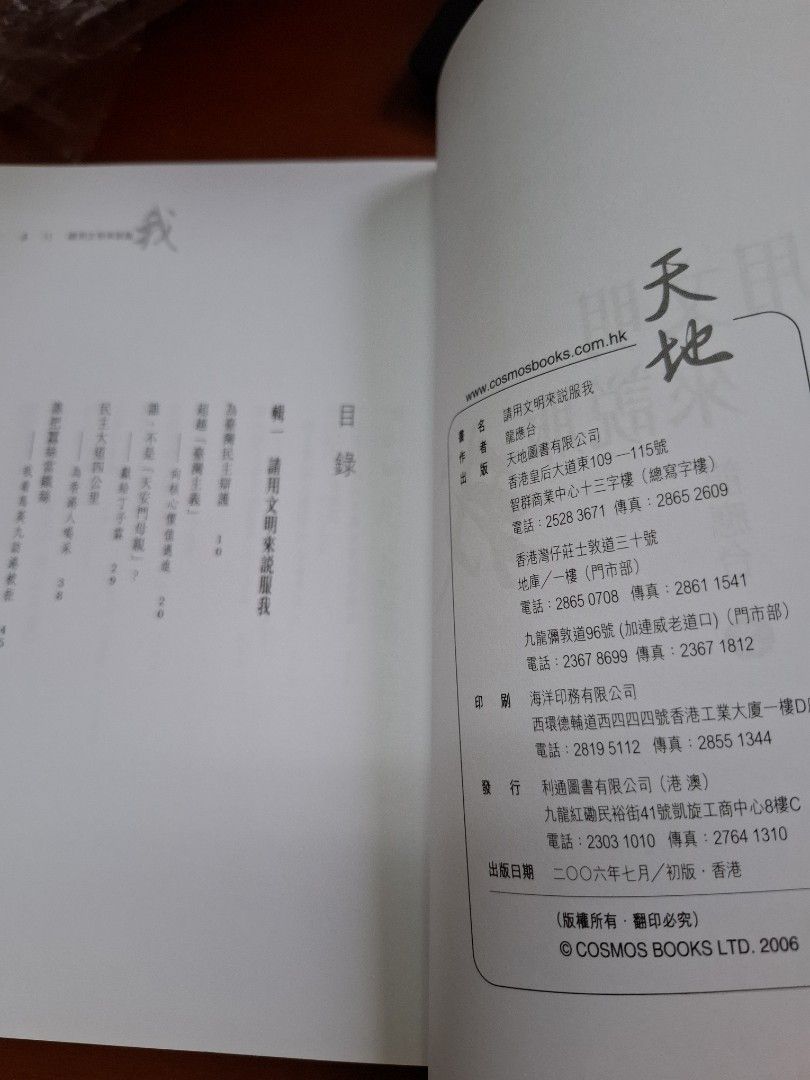 天地
www.cosmosbooks.com.hk
書　名　請用文明來說服我
作　者　龍應台
出　版　天地圖書有限公司
香港皇后大道東109—115號
智群商業中心十三字樓（總寫字樓）
電話：2528 3671 傳真：2865 2609
香港灣仔莊士敦道三十號
地庫／一樓（門市部）
電話：2865 0708 傳真：2861 1541
九龍彌敦道96號 (加連威老道口)（門市部）
電話：2367 8699 傳真：2367 1812
印　刷　海洋印務有限公司
西環德輔道西四四四號香港工業大廈一樓D
電話：2819 5112 傳真：2855 1344
發　行　利通圖書有限公司（港 澳）
九龍紅磡民裕街41號凱旋工商中心8樓C
電話：2303 1010 傳真：2764 1310
出版日期　二〇〇六年七月／初版．香港
（版權所有．翻印必究）
© COSMOS BOOKS LTD. 2006
我
目錄
輯一　請用文明來說服我
為臺灣民主辯護　10
超越「臺灣主義」
——向核心價值邁進　20
誰，不是「天安門母親」？
——獻給丁子霖　29
民主大道四公里
——為香港人喝采　38